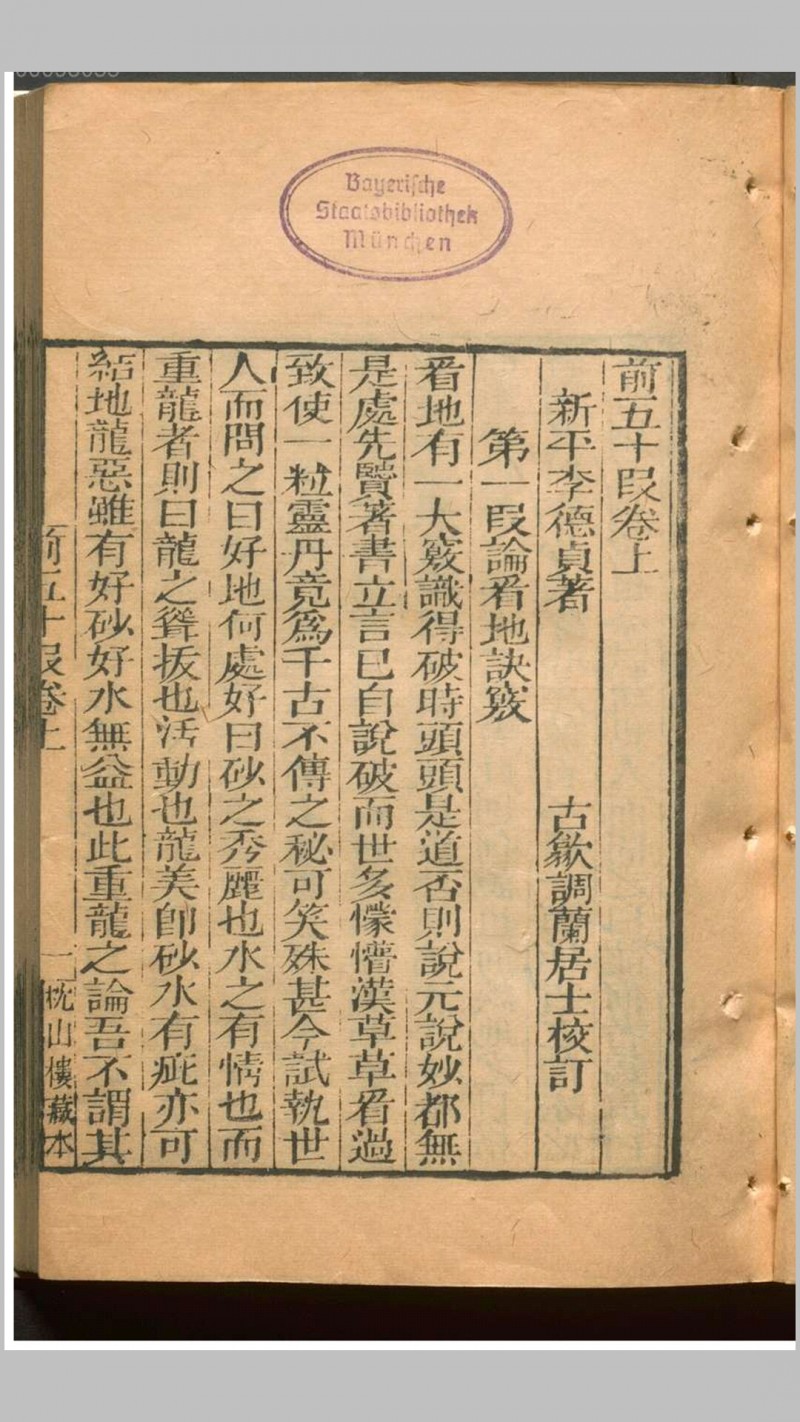 Bayerische
Staatsbibliothek
München
前五十段卷上
新平李德貞著　古歙調蘭居士校訂
第一段論看地訣竅
看地有一大竅識得破時頭頭是道否則說元說妙都無
是處先賢著書立言已自說破而世多懞懵漢草草看過
致使一粒靈丹竟爲千古不傳之秘可笑殊甚今試執世
人而問之曰好地何處好曰砂之秀麗也水之有情也而
重龍者則曰龍之聳拔也活動也龍美卽砂水有疵亦可
給地龍惡雖有好砂好水無益也此重龍之論吾不謂其
前五十段卷上　一　枕山樓藏本